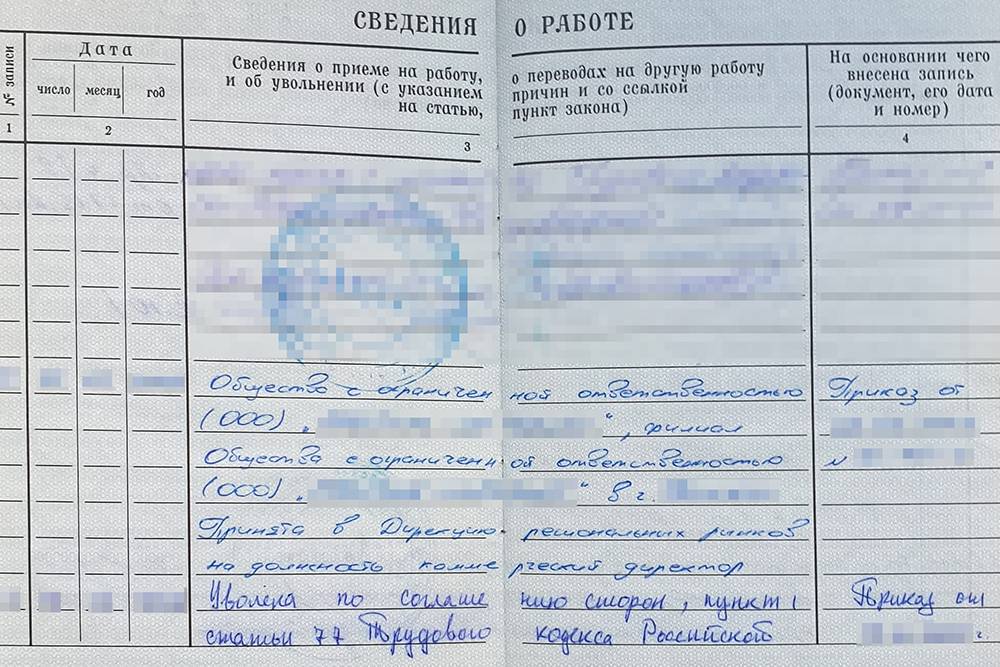 СВЕДЕНИЯ О РАБОТЕ
№ записи
Дата
число месяц год
Сведения о приеме на работу, о переводах на другую работу
и об увольнении (с указанием причин и со ссылкой
на статью, пункт закона)
На основании чего
внесена запись
(документ, его дата
и номер)
1 2 3 4
Общество с ограниченной ответственностью Приказ от
(ООО) „ “, филиал
Общества с ограниченной ответственностью №
(ООО) „ “ в г.
Принята в Дирекцию региональных рынков
на должность коммерческий директор
Уволена по соглашению сторон, пункт 1 Приказ от
статьи 77 Трудового кодекса Российской г.